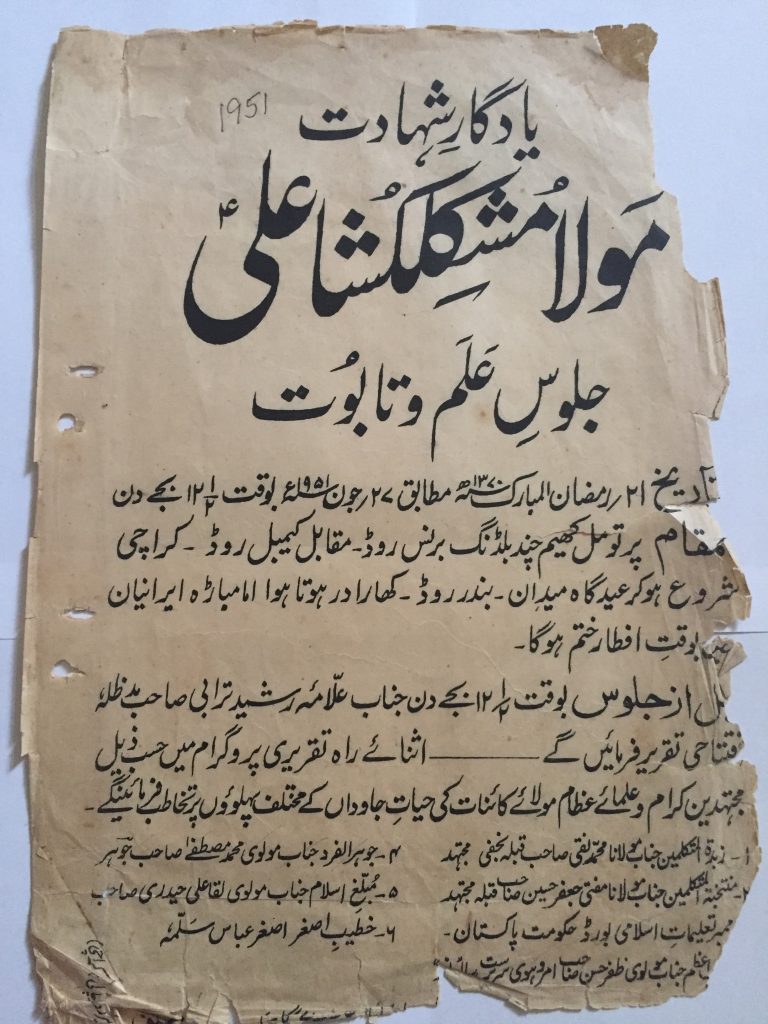 1951
یادگارِ شہادت
مَولا مُشکِلکُشا علی ؑ
جلوسِ عَلَم و تابُوت
تاریخ ۲۱؍رمضان المبارک ۱۳۷۰ھ مطابق ۲۷؍جون ۱۹۵۱ء بوقت ۱۲½ بجے دن
مقام پرتومل کھیم چند بلڈنگ برنس روڈ۔ مقابل کیمبل روڈ ۔ کراچی
شروع ہوکر عیدگاہ میدان ۔ بندر روڈ ۔ کھارادر ہوتا ہوا امامباڑہ ایرانیان
میں بوقتِ افطار ختم ہوگا۔
قبل از جلوس بوقت ۱۲½ بجے دن جناب علّامہ رشید ترابی صاحب مدظلہٗ
افتتاحی تقریر فرمائیں گے ــــــــ اثنائے راہ تقریری پروگرام میں حسب ذیل
مجتہدین کرام و علمائے عظام مولائے کائنات کی حیاتِ جاوداں کے مختلف پہلوؤں پر تخاطب فرمائینگے۔
۱۔ زبدۃ المتکلمین جناب مولانا محمد تقی صاحب قبلہ نجفی مجتہد
۲۔ منتخبۃ المتکلمین جناب مولانا مفتی جعفر حسین صاحب قبلہ مجتہد
ممبر تعلیمات اسلامی بورڈ حکومت پاکستان۔
اعظم جناب مولوی ظفر حسن صاحب امروہوی سرپرست
۴۔ جوہر الفرد جناب مولوی محمد مصطفےٰ صاحب جوؔہر
۵۔ مُبلّغِ اسلام جناب مولوی لقا علی حیدری صاحب
۶۔ خطیبِ اصغر اصغر عباس سلّمہٗ